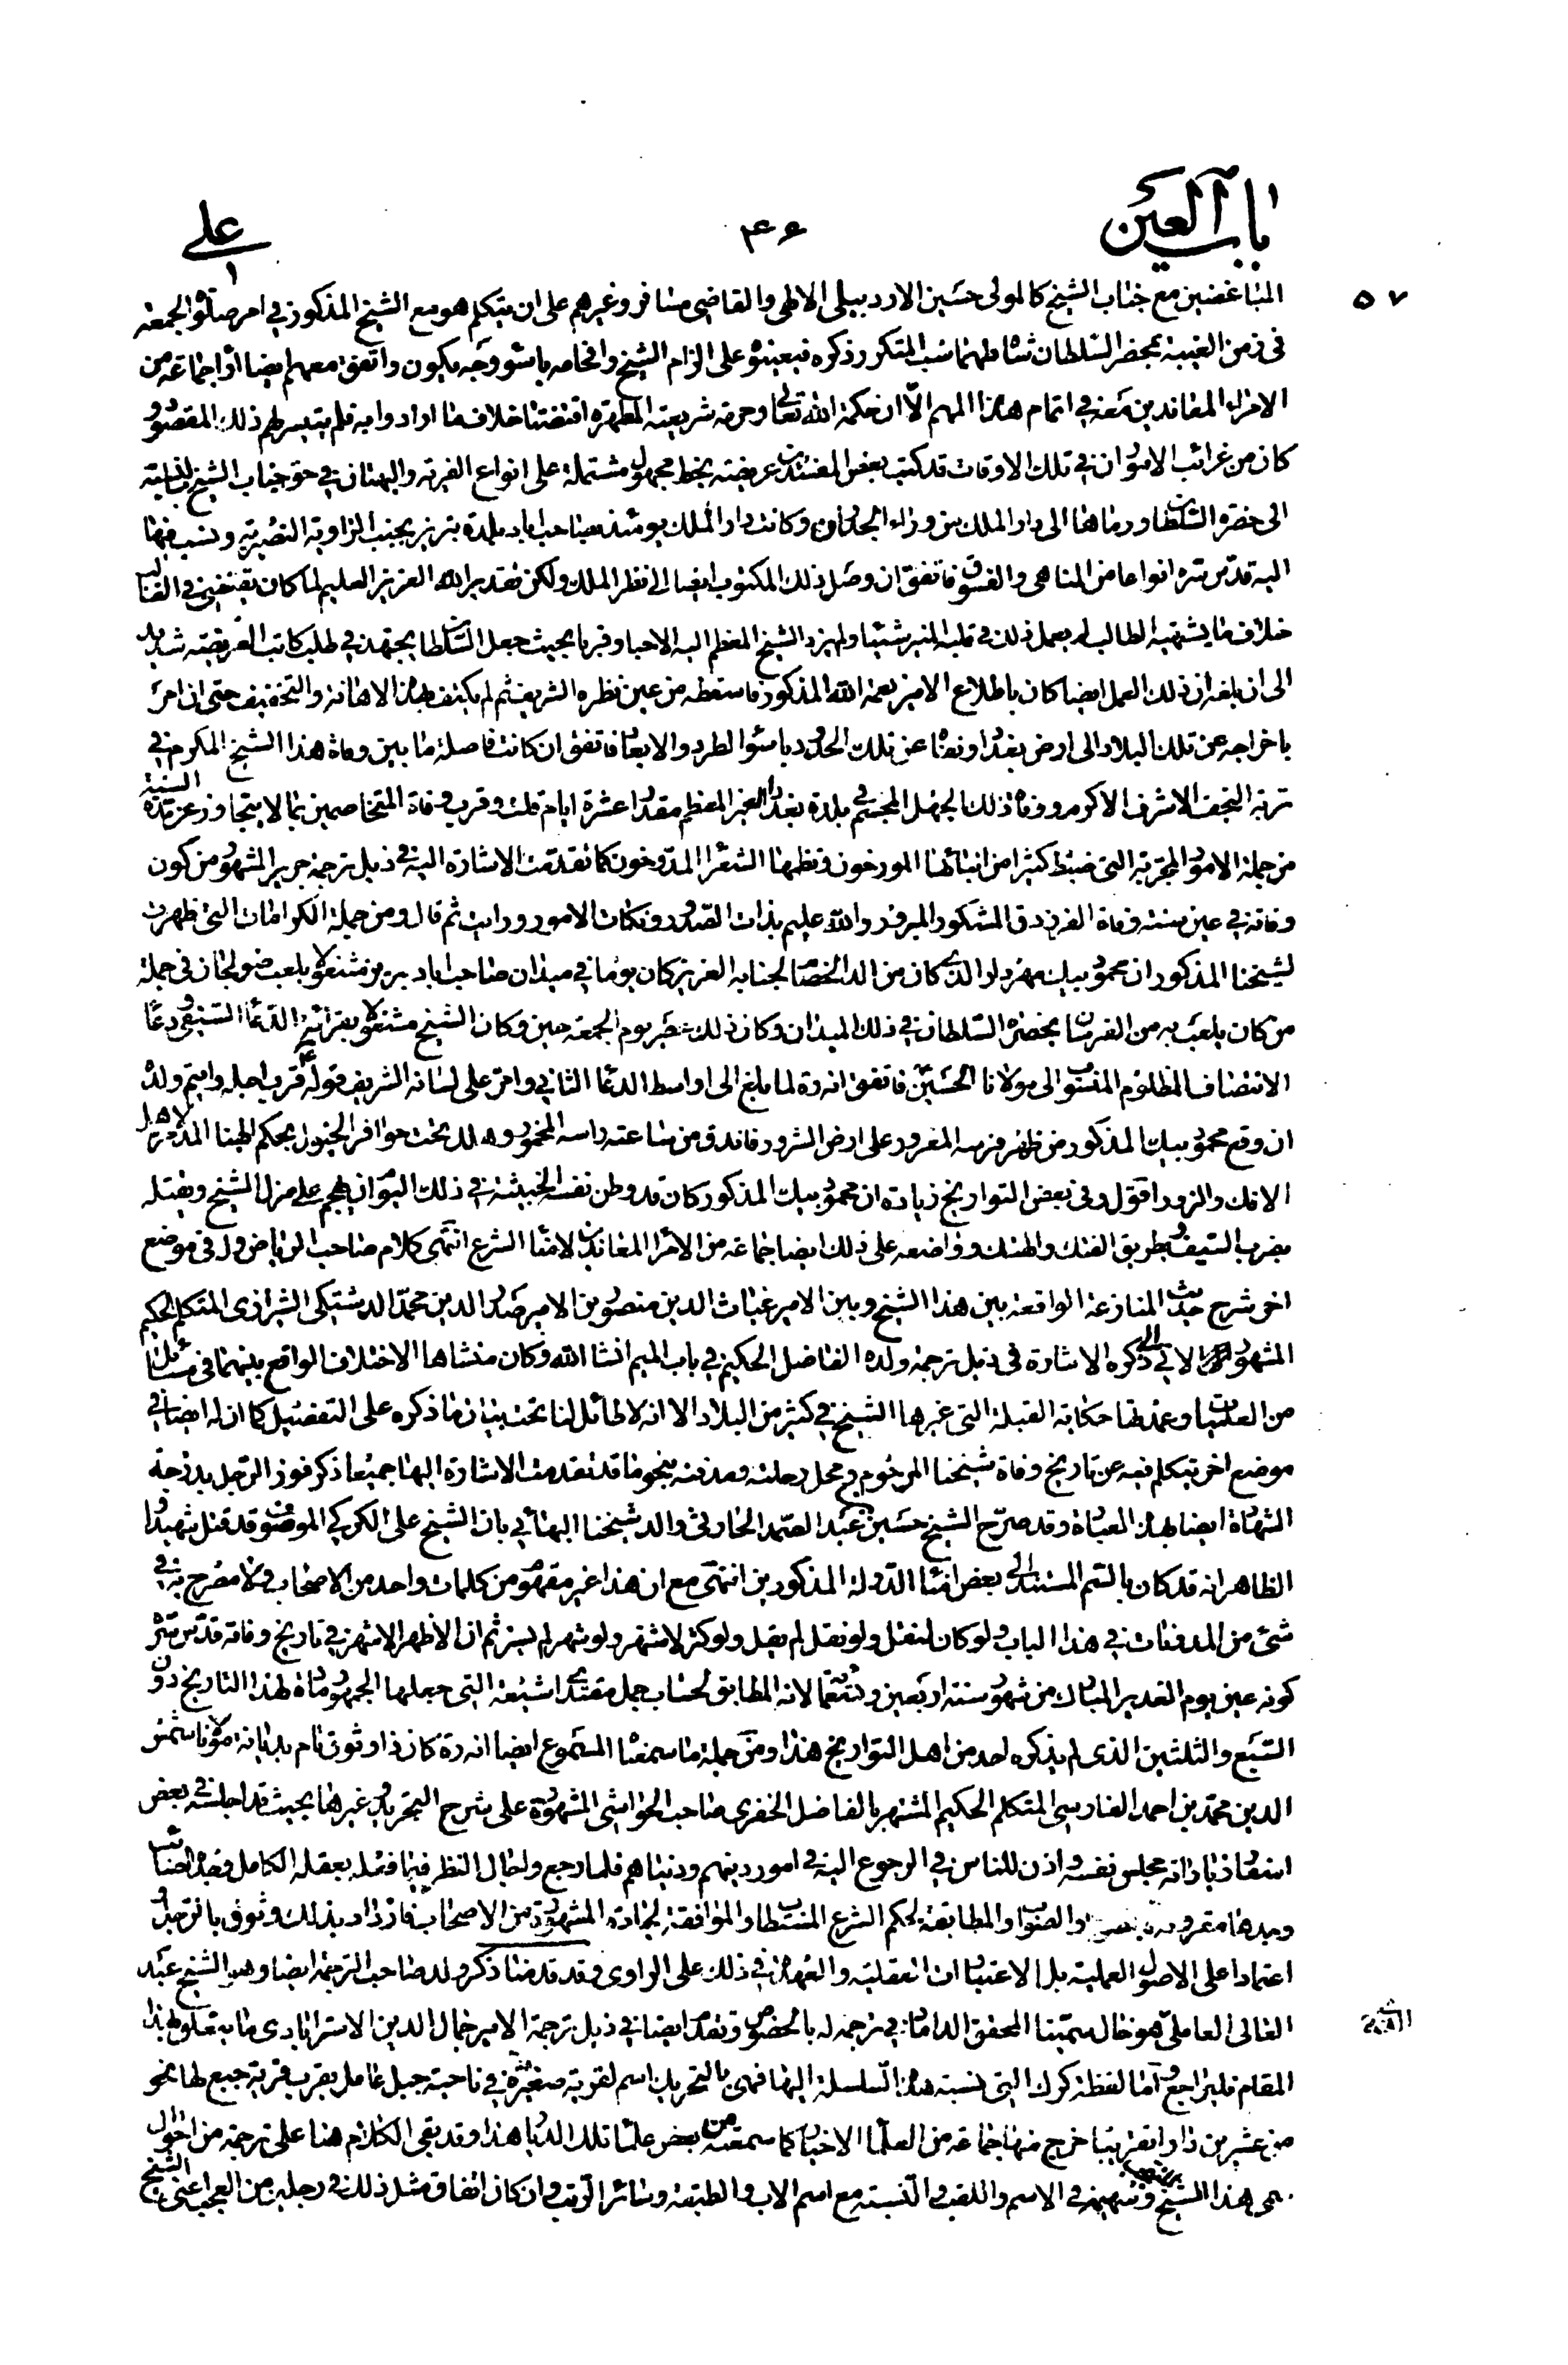 باب العين
۴۰۶
علي
۵۷
المباغضين مع جناب الشيخ كالمولى حسين الاردبيلى الالهى والقاضى مسافر وغيرهم على ان يتكلم هو مع الشيخ المذكور فى امر صلوة الجمعه
فى زمن الغيبة بمحضر السلطان شاه طهماسب المتكرر ذكره فيعينوه على الزام الشيخ وافحامه باسوء وجه يكون واتفق معهم ايضا اذا جماعة من
الامراء المعاندين معه فى اتمام هذا المهم الا ان حكمة الله تعالى وحرمة شريعته المطهرة اقتضتا خلاف ما ارادوا به فلم يتيسر لهم ذلك المقصود و
كان من غرائب الامور ان فى تلك الاوقات قد كتب بعض المفسدين عريضة بخط مجهول مشتملة على انواع الفرية والبهتان فى حق جناب الشيخ بالنسبة
الى حضرة السلطان ورماها الى دار الملك من وراء الجدران وكانت دار الملك يومئذ بصاحب اباد بلدة تبريز بجنب الزاوية النصرية ونسب فيها
اليه قدس سره انواعا من المناهى والفسوق فاتفق ان وصل ذلك المكتوب ايضا الى نظر الملك ولكن بتقدير الله العزيز العليم لما كان يقتضى فى الغالب
خلاف ما يشتهيه الطالب لم يعمل ذلك فى قلبه المنير شيئا ولم يزد الشيخ المعظم اليه الاحبا وقربا بحيث جعل السلطان يجتهد فى طلب كاتب العريضة شديد
الى ان بلغه ان ذلك العمل ايضا كان باطلاع الامير نعمة الله المذكور فاسقطه من عين نظره الشريف ثم لم يكتف بهذه الاهانة والتخفيف حتى ان امر
باخراجه عن تلك البلاد الى ارض بغداد ونفاه عن تلك الحدود باسوء الطرد والابعاد فاتفق ان كانت فاصلة ما بين وفاة هذا الشيخ المكرم فى
تربة النجف الاشرف الاكرم ووفاة ذلك الجهل المجسم فى بلدة بغداد الغير المعظم مقدار عشرة ايام قلت وقرب وفاة المتخاصمين بما لا يتجاوز عن مدة السنة
من جملة الامور المجربة التى ضبط كثيرا من انبائها المورخون ونظمها الشعراء المدوخون كما تقدمت الاشارة اليه فى ذيل ترجمة جرير المشهور من كون
وفاته فى عين سنة وفاة الفرزدق المشكور المبرور والله عليم بذات الصدور ونكات الامور ورايت ثم قال ومن جملة الكرامات التى ظهرت
لشيخنا المذكور ان محمود بيك مهردار الذى كان من الد الخصام لجنابه العزيز كان يوما فى ميدان صاحب اباد تبريز مشغولا بلعب صولجان فى جملة
من كان يلعب به من الفرسان بحضرة السلطان فى ذلك الميدان وكان ذلك عصر يوم الجمعة حين وكان الشيخ مشغولا بقرائة الدعاء السيفى ودعاء
الانتصاف المظلوم المنسوب الى مولانا الحسين ع فاتفق انه ره لما بلغ الى اواسط الدعاء الثانى وامر على لسانه الشريف قوله قرب اجله وايتم ولده
ان وقع محمود بيك المذكور من ظهر فرسه المغرور على ارض الشرور فاندق من ساعته راسه المخمور وهلك تحت حوافر الخيول بحكم الهنا المدمر لاهل
الافك والزور اقول وفى بعض التواريخ زيادة ان محمود بيك المذكور كان قد وطن نفسه الخبيثة فى ذلك اليوم ان يهجم على منزل الشيخ ويقتله
بضرب السيف بطريق الفتك والهتك وواضعه على ذلك ايضا جماعة من الامراء المعاندين لامناء الشرع انتهى كلام صاحب الرياض وله فى موضع
اخر شرح حديث المنازعة الواقعة بين هذا الشيخ وبين الامير غياث الدين منصور بن الامير صدر الدين محمد الدشتكى الشيرازى المتكلم الحكيم
المشهور الاتى الى ذكره الاشارة فى ذيل ترجمة ولده الفاضل الحكيم فى باب الميم انشاء الله وكان منشاها الاختلاف الواقع بينهما فى مسائل
من العلميات وعمدتها حكاية القبلة التى غيرها الشيخ فى كثير من البلاد الا انه لا طائل لنا تحت بيان ما ذكره على التفصيل كما ان له ايضا فى
موضع اخر يتكلم فيه عن تاريخ وفاة شيخنا المرحوم ومحل رحلته ومدفنه بنحو ما قد تقدمت الاشارة اليها جميعا ذكر فوز الرجل بدرجة
الشهادة ايضا بهذه العبارة وقد صرح الشيخ حسين بن عبد الصمد الحارثى والد شيخنا البهائى بان الشيخ على الكركى الموصوف قد قتل شهيدا و
الظاهر انه قد كان بالسم المستند الى بعض امناء الدولة المذكورين انتهى مع ان هذا غير مفهوم من كلمات واحد من الاصحاب ولا مصرح به فى
شئ من المدونات فى هذا الباب ولو كان لنقل ولو نقل لم يقل ولو كثر لاشتهر ولو شهر لم يستر ثم ان الاظهر الاشهر فى تاريخ وفاته قدس سره
كونه عين يوم الغدير المبارك من شهور سنة اربعين وتسعمائة لانه المطابق لحساب جمل مقتداى شيعه التى جعلها الجمهور مادة لهذا التاريخ دون
السبع والثلثين الذى لم يذكره احد من اهل التواريخ هذا ومن جملة ما سمعناه المسموع ايضا انه ره كان ذا وثوق تام بديانة مولانا شمس
الدين محمد بن احمد الفارسى المتكلم الحكيم المشتهر بالفاضل الخفرى صاحب الحواشى المشهورة على شرح التجريد وغيرها بحيث قد اجلسه فى بعض
اسفاره باداته مجلس نفسه واذن للناس فى الرجوع اليه فى امور دينهم ودنياهم فلما رجع واحال النظر فيما فعله بعقله الكامل وفهمه الصائب
وجدها مقرونة والصواب والمطابقة لحكم الشرع المستطاب والموافقة لجادة المشهورة من الاصحاب فازداد بذلك وثوقى بانه جل
اعتمادا على الاصول العملية بل الاعتبارات العقلية والعهدة فى ذلك على الراوى وقد قدمنا ذكر ولد صاحب الترجمة ايضا وهو الشيخ عبد
العالى العاملى هو خال سمينا المحقق الداماد فى ترجمة له بالخصوص وتقدم ايضا فى ذيل ترجمة الامير جمال الدين الاسترابادى ما به تعلق بهذا
المقام فليراجع واما لفظة كرك التى نسبة هذه السلسلة اليها فهى بالتحريك اسم لقرية صغيرة فى ناحية جبل عامل بقرب قرية جبع لها نحو
من عشرين دارا تقريبا خرج منها جماعة من العلماء الاخيار كما سمعته من بعض علماء تلك الديار هذا وقد بقى الكلام هنا على ترجمة من احوال
سمى هذا الشيخ وشبيهه فى الاسم واللقب والنسبة مع اسم الاب والطبقة وسائر الرتب وان كان اتفاق مثل ذلك فى رجلين من العجب اعنى الشيخ